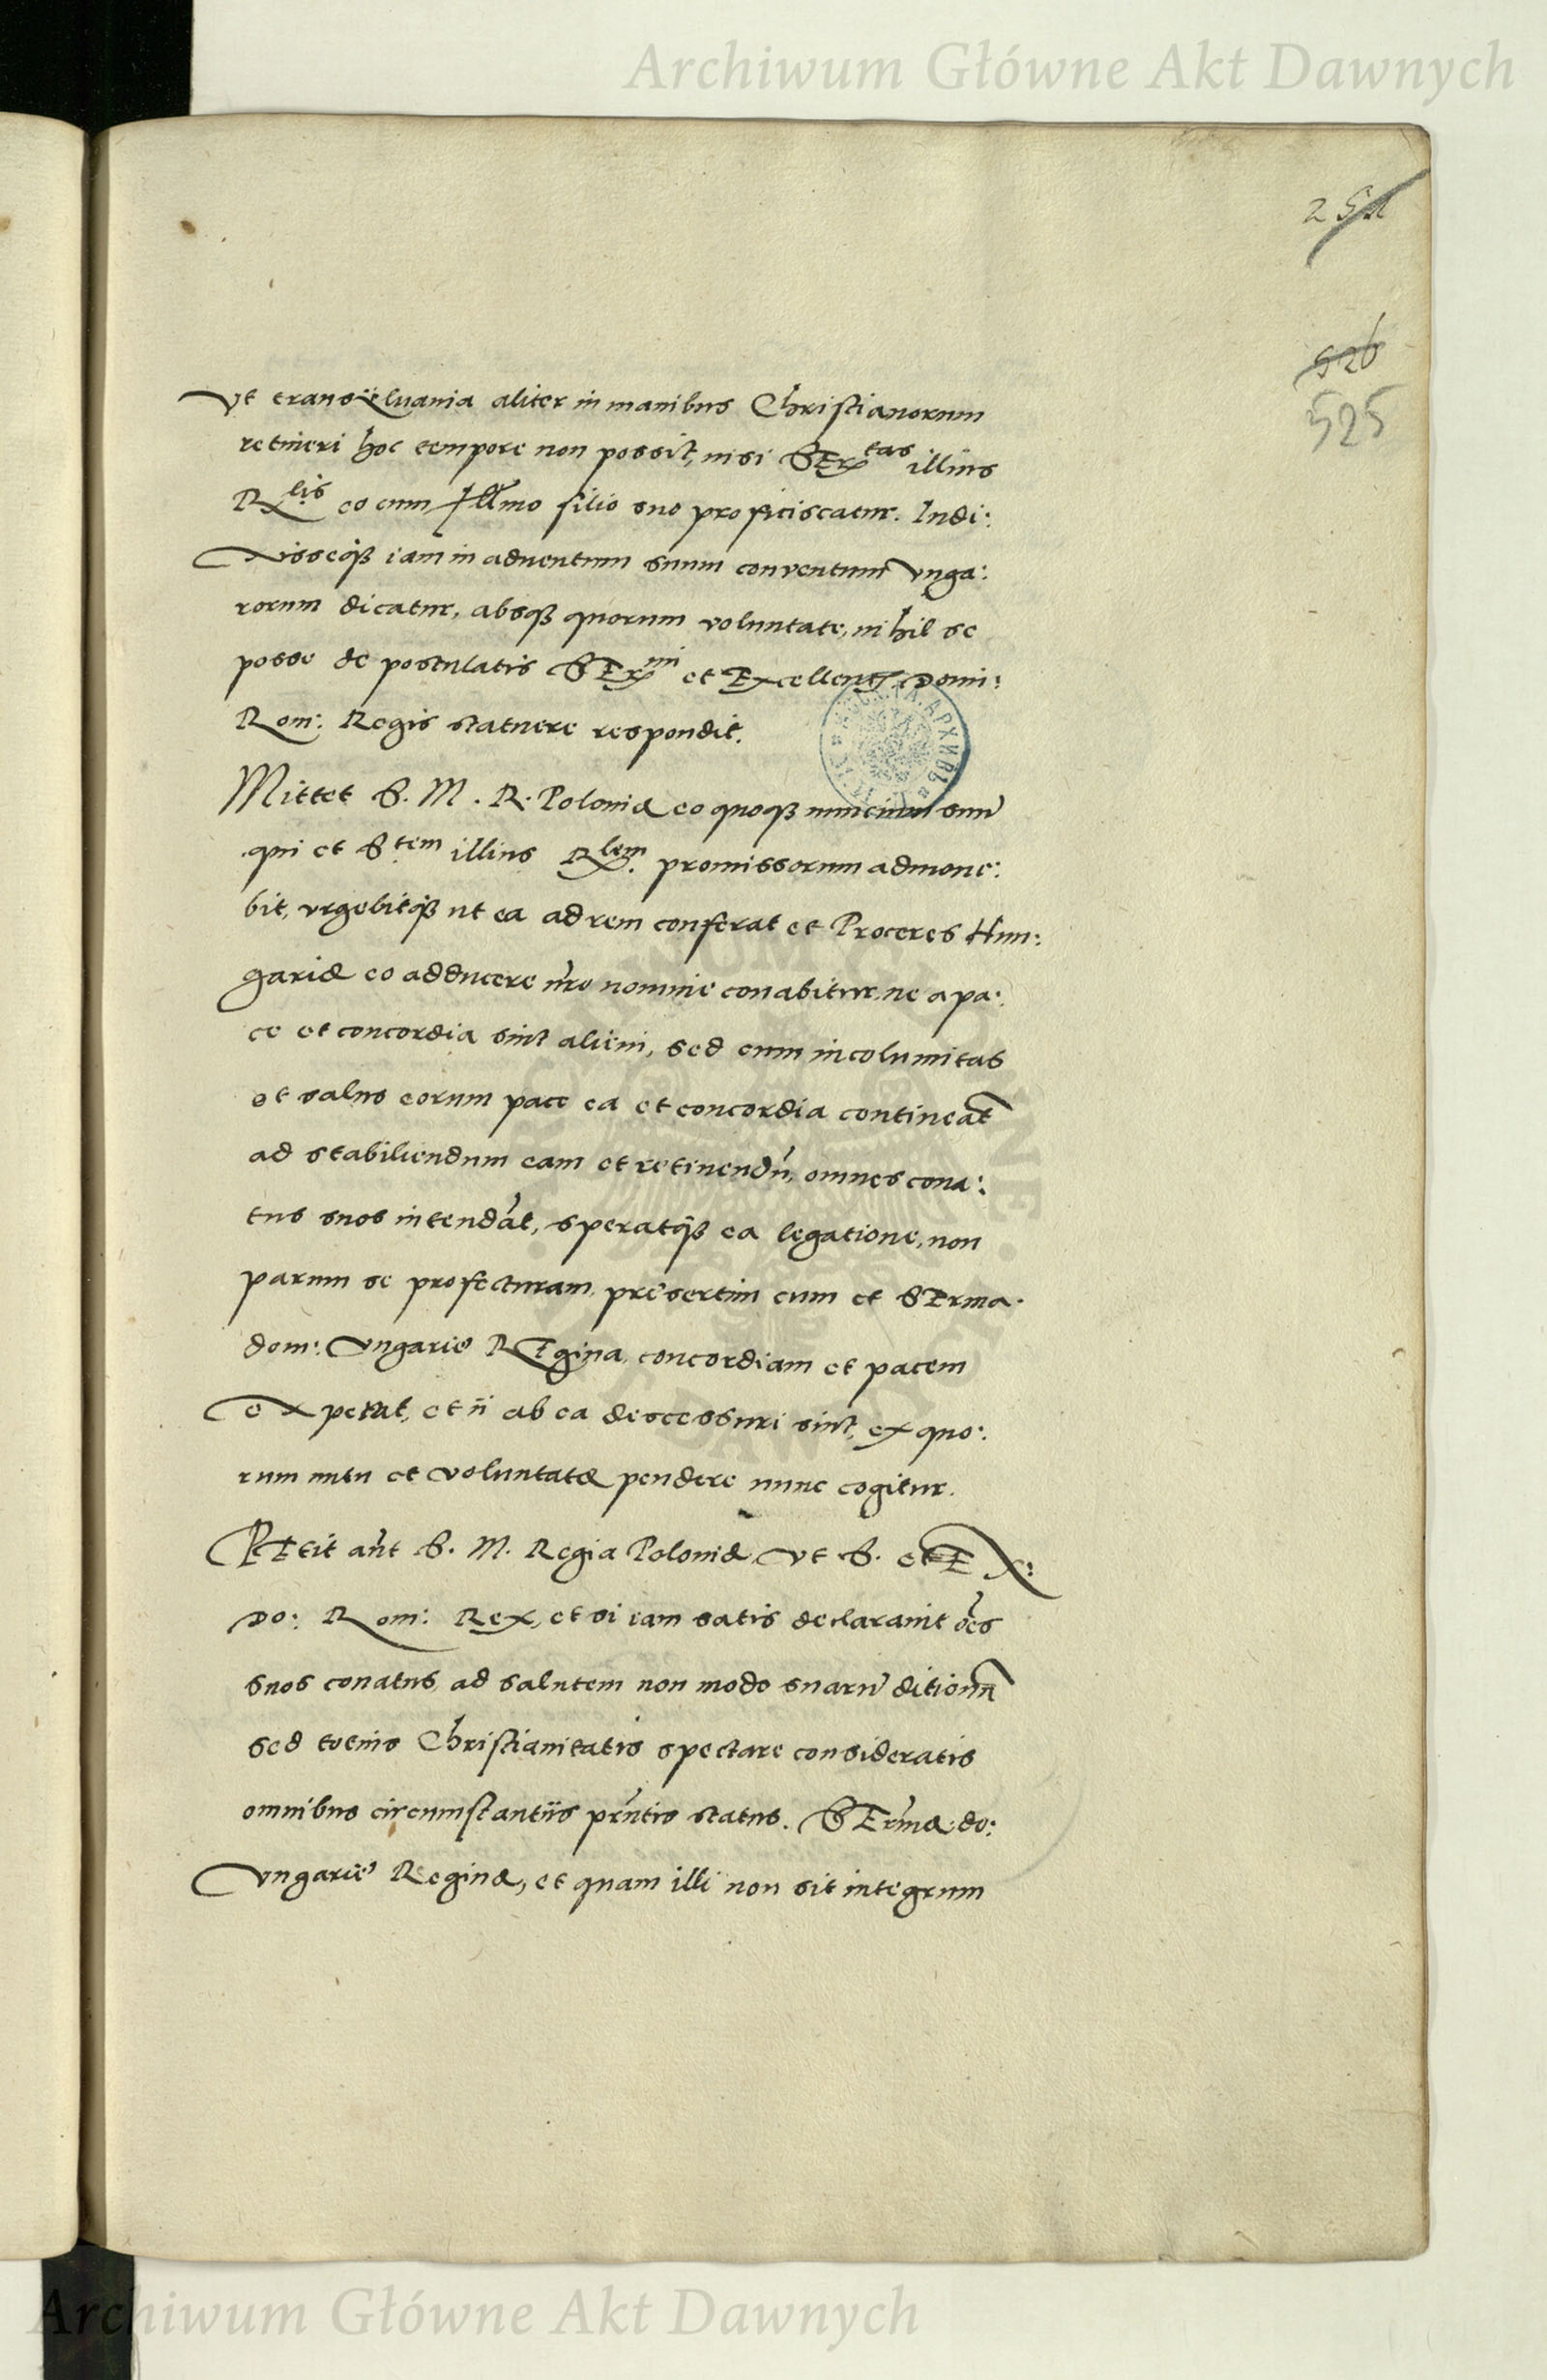 Archiwum Główne Akt Dawnych
251
526
525
Vt transÿluania aliter in manibus Christianorum
retineri hoc tempore non possit, nisi SEr^tas illius
R^lis eo cum Illmo filio suo proficiscatur. Indi:
xisseqß iam in aduentum suum conventum Vnga:
rorum dicatur, absqß quorum voluntate, nihil se
posse de postulatis SEr^mi et Excellent Domi:
Rom: Regis statuere respondit.
Mittet S. M. R. Poloniæ eo quoqß nuncium suū
qui et S^tem illius R^lem promissorum admone:
bit, vrgebitqß ut ea ad rem conferat et Proceres Hun:
gariæ eo adducere nro nomine conabitur, ne a pa:
ce et concordia sint alieni, sed cum incolumitas
et salus eorum pace ea et concordia contineat
ad stabiliendum eam et retinendū, omnes cona:
tus suos intendāt, speratqß ea legatione, non
parum se profecturam, presertim cum et SErma
dom: Vngarie REgina, concordiam et pacem
expetat, et ii ab ea descessuri sint, ex quo:
rum nutu et voluntate pendere nunc cogitur.
PEtit aūt S. M. Regia Poloniæ Vt S. et EX:
Do: Rom: Rex, et si iam satis declarauit oēs
suos conatus, ad salutem non modo suarū ditionū
sed totius Christianitatis spectare consideratis
omnibus circumstantiis prntis status. SErmæ do:
Vngarie Reginæ, et quam illi non sit integrum
Archiwum Główne Akt Dawnych